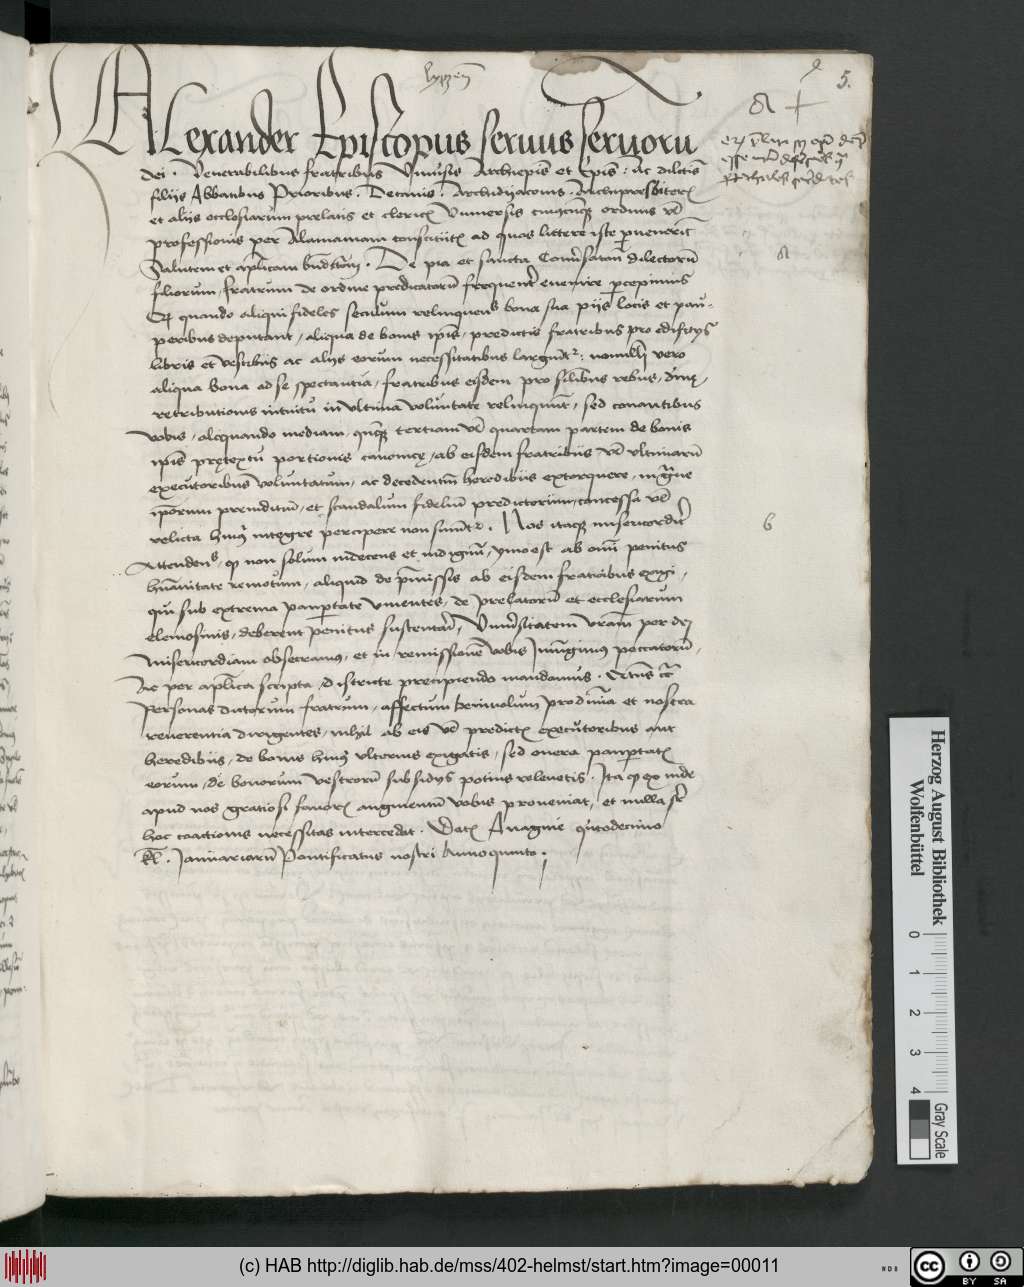 5.
Alexander Episcopus seruus seruorū
dei . Venerabilibus fratribus Vniuersis Archiepis et Epis : ac dilectis
filijs Abbatibus Prioribus . Decanis . Archidyaconis . Archipresbiteris
et alijs ecclesiarum prelatis et clericis Vniuersis cuiuscūqȝ ordinis vel
professionis per Alamaniam constitutis ad quos littere iste peruenerit
Salutem et aplicam bndictionem . De pia et sancta Conuersatione dilectorū
filiorum, fratrum de ordine predicatorū frequenter euenire percepimus
quando aliqui fideles seculum relinquens bona sua pijs locis et pau-
peribus deputant, aliqua de bonis ipis, predictis fratribus pro edificijs
libris et vestibus ac alijs eorum necessitatibus largiunt : nonnulli vero
aliqua bona ad se spectantia, fratribus eisdem pro silibus rebus, diuine,
retributionis intuitu in vltima voluntate relinquunt, sed conantibus
vobis, aliquando mediam, qnqȝ tertiam vel quartam partem de bonis
ipis pretextu portionis canonice, ab eisdem fratribus vel vltimarū
executoribus voluntatum, ac decedentium heredibus extorquere, in graue
ipsorum preiuditiū, et scandalum fideliū predictorum, concessa vel
relicta huius integre percipere non sinunt . Nos itaqȝ misericorditer
Attendens, qȝ non solum indecens et indignū, ymo est ab omni penitus
humanitate remotum, aliquid de premissis ab eisdem fratribus exigi,
qui sub extrema paupertate viuentes, de prelatorū et ecclesiarum
elemosinis, deberent penitus sustentari, Vniuersitatem vram per dei
Misericordiam obsecramus, et in remissione vobis Iniungimus peccatorū,
Ac per aplica scripta, districte precipiendo mandamus .
Personas dictorum fratrum, affectum beniuolum pro diuina et nostra
reuerentia dirigentes, nihil ab eis vel predictis executoribus aut
heredibus, de bonis huius vlterius exigatis, sed onera paupertatis
eorum, de bonorum vestrorū subsidijs potius releuetis . Ita qȝ ex inde
apud nos, gratiosi fauoris augmentū vobis proueniat, et nulla super
hoc coactionis necessitas intercedat . Datis Anagnie quitodecimo
kl . Ianuariarū Pontificatus nostri Anno quinto .
6
Herzog August Bibliothek
Wolfenbüttel
0 1 2 3 4
Gray Scale
(c) HAB http://diglib.hab.de/mss/402-helmst/start.htm?image=00011
WDB
cc BY SA